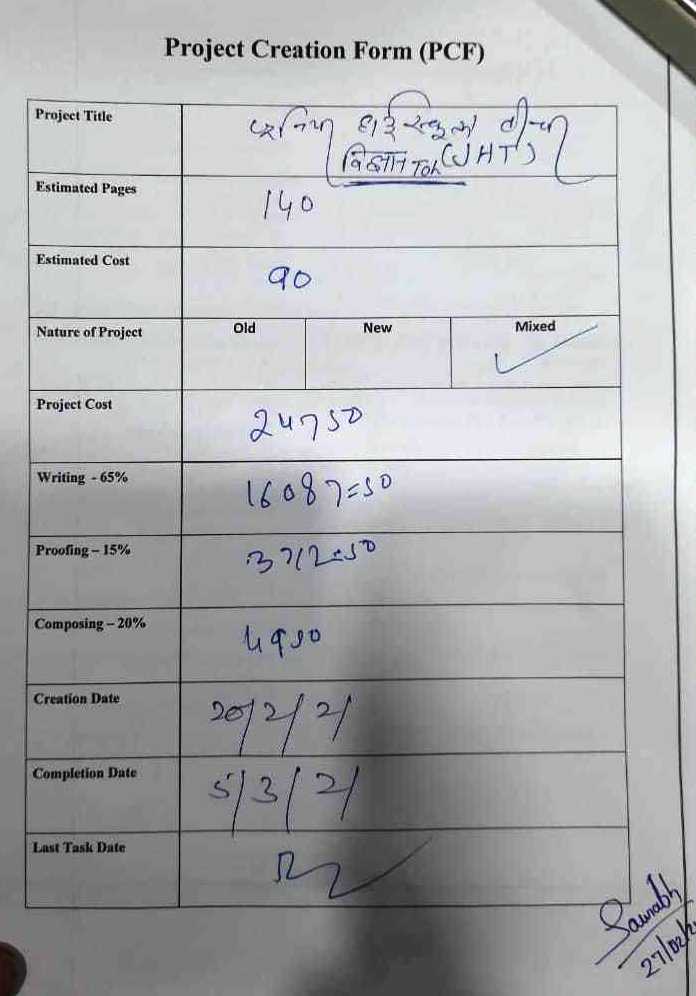 Project Creation Form (PCF)
Project Title
हाईस्कूल
विज्ञान Toh (JHT)
Estimated Pages 140
Estimated Cost 90
Nature of Project Old New Mixed
Project Cost 24750
Writing - 65% 16087=50
Proofing – 15% 3712=50
Composing – 20% 4950
Creation Date 20/2/21
Completion Date 5/3/21
Last Task Date
Saurabh
27/02/2